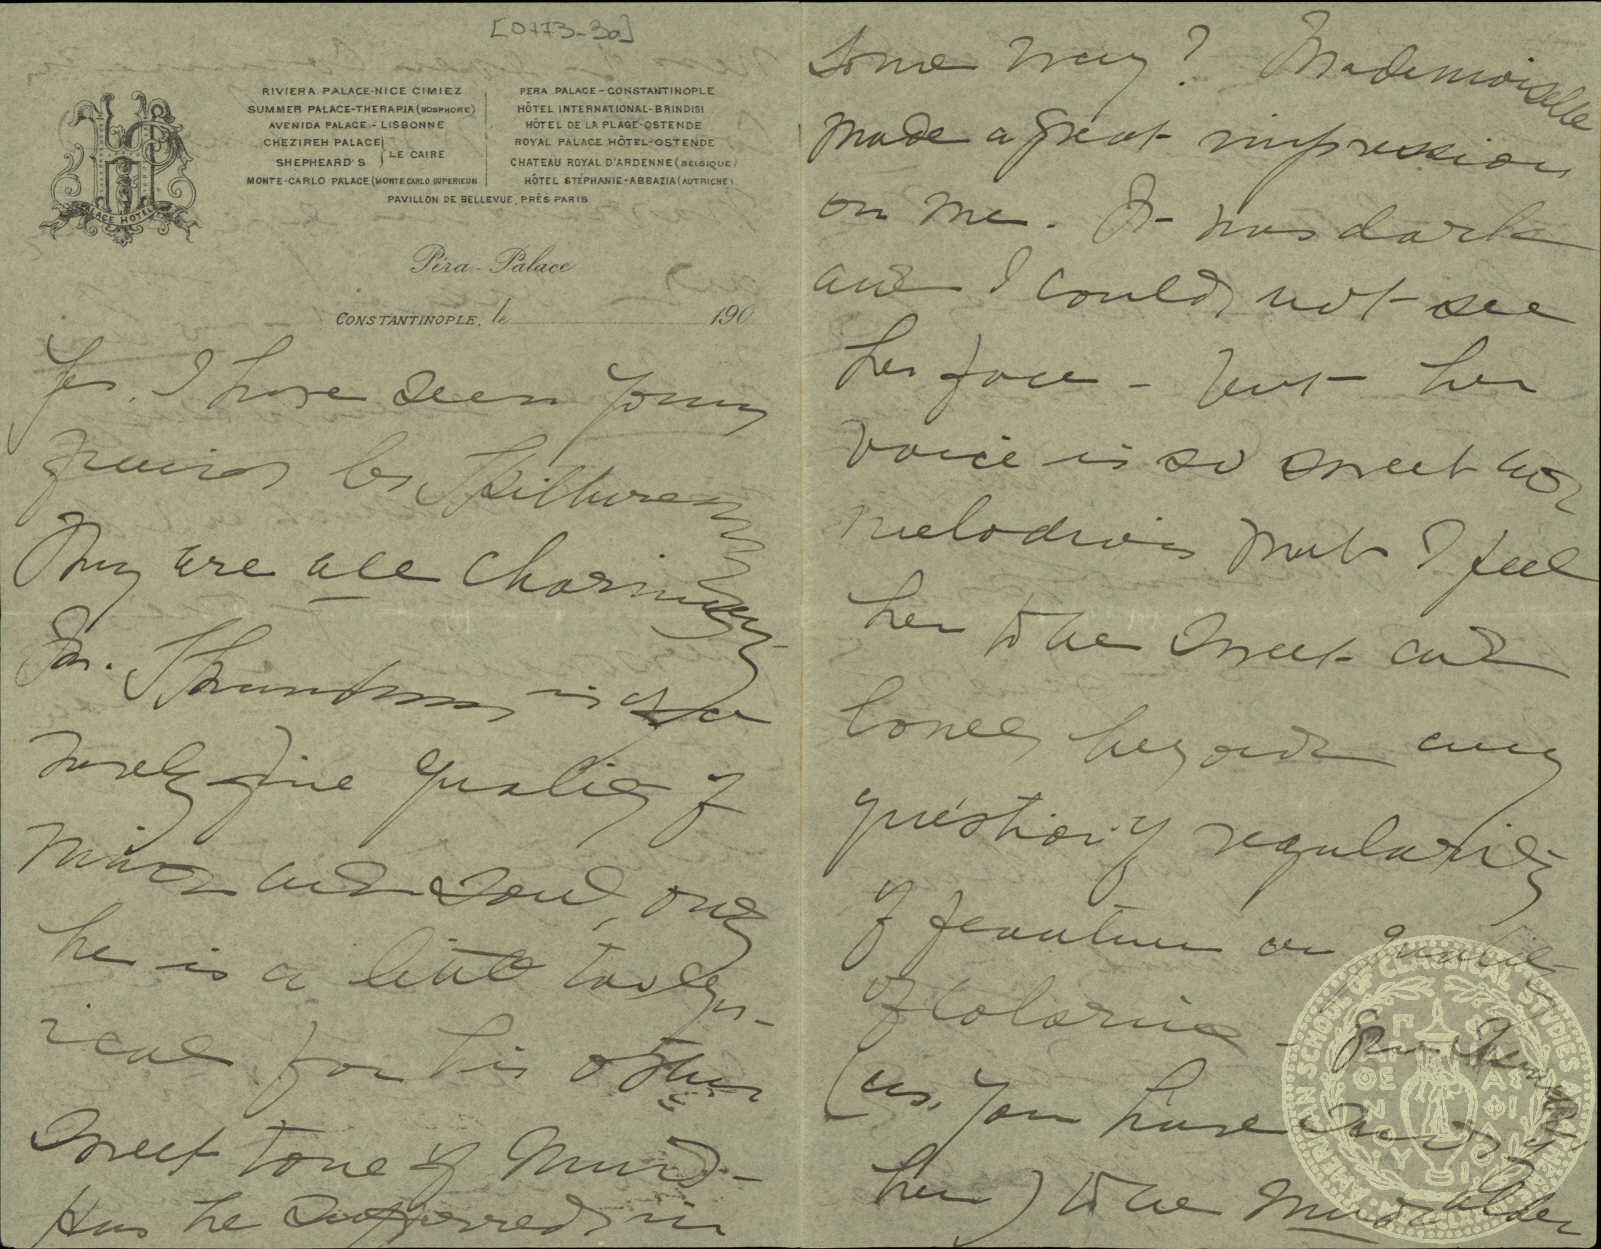 [0773-3a]
RIVIERA PALACE-NICE CIMIEZ
SUMMER PALACE-THERAPIA (BOSPHORE)
AVENIDA PALACE - LISBONNE
CHEZIREH PALACE
SHEPHEARD'S
LE CAIRE
MONTE-CARLO PALACE (MONTE CARLO SUPERIEUR
PERA PALACE - CONSTANTINOPLE
HÔTEL INTERNATIONAL-BRINDISI
HÔTEL DE LA PLAGE-OSTENDE
ROYAL PALACE HÔTEL-OSTENDE
CHATEAU ROYAL D'ARDENNE (BELGIQUE)
HÔTEL STÉPHANIE-ABBAZIA (AUTRICHE)
PAVILLON DE BELLEVUE, PRÈS PARIS
PALACE HOTEL
Péra-Palace
CONSTANTINOPLE, le 190
Yes. I have seen your
friends les
They are all charming
is of a
rarely fine quality of
mind and soul, only
he is a little
for his other
sweet tone of mind -
Has he suffered in
some way? Mademoiselle
made a great impression
on me. It was dark
and I could not see
her face - but her
voice is so sweet and
melodious that I feel
her to be sweet and
lovely beyond any
question of regularity
of feature or
of coloring -
(as, you have
her) to be much older
AMERICAN SCHOOL OF CLASSICAL STUDIES AT